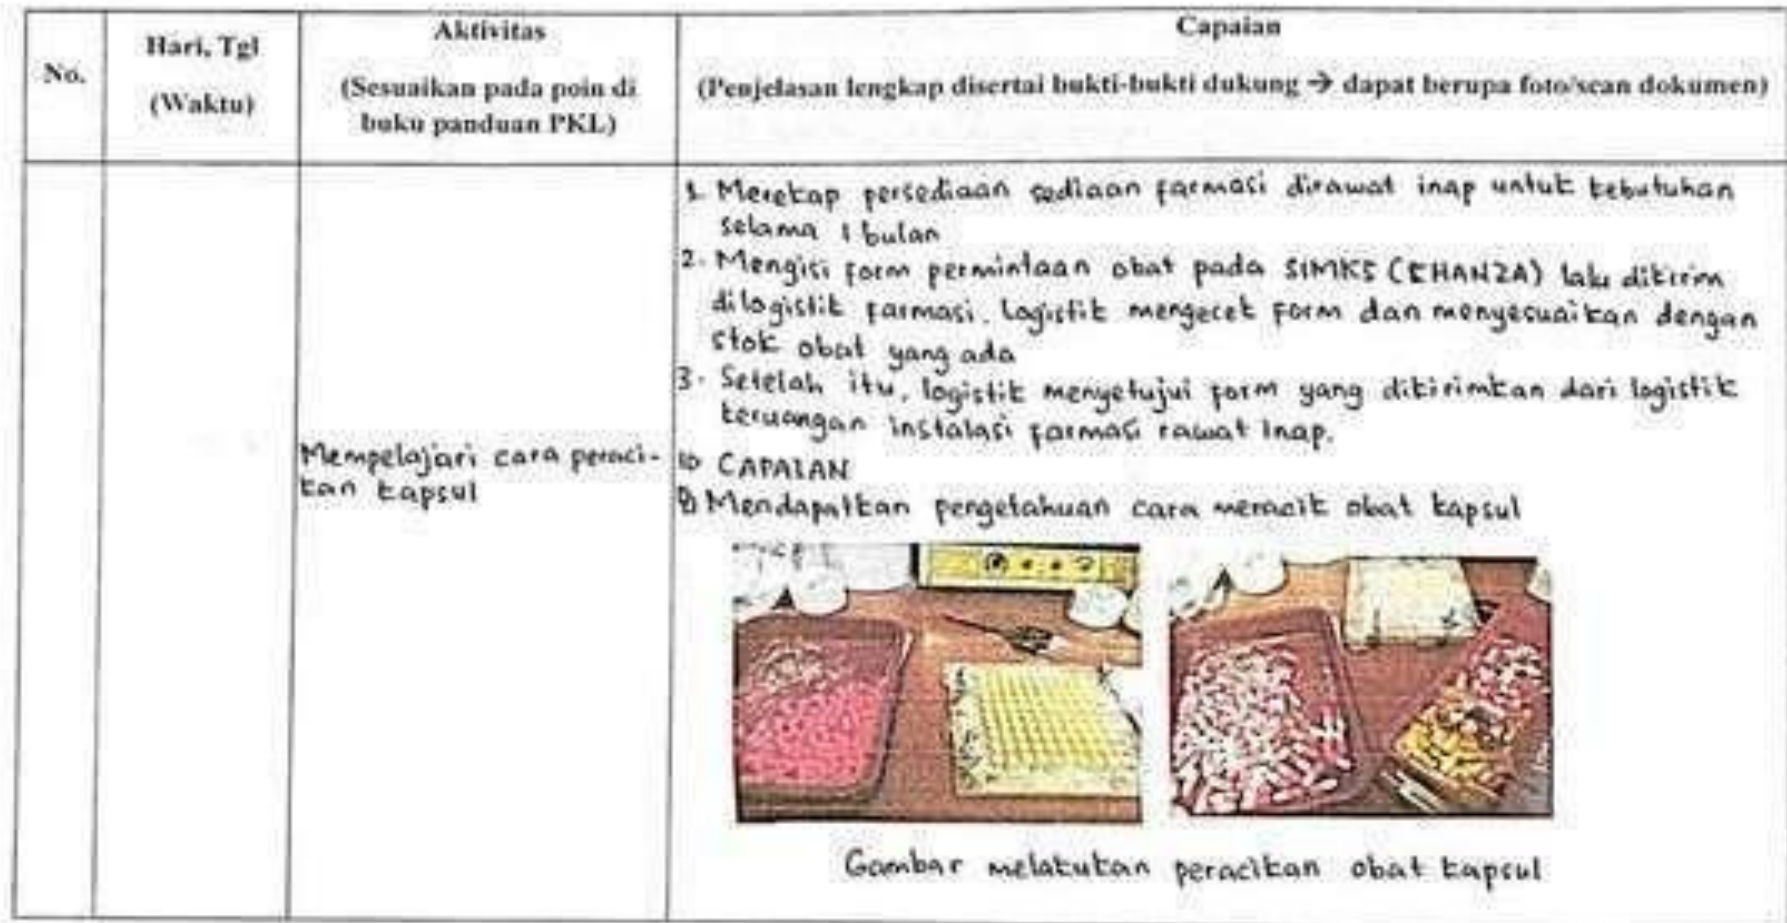 No.
Hari, Tgl
(Waktu)
Aktivitas
(Sesuaikan pada poin di
buku panduan PKL)
Capaian
(Penjelasan lengkap disertai bukti-bukti dukung → dapat berupa foto/scan dokumen)
1. Merekap persediaan sediaan farmasi dirawat inap untuk kebutuhan
selama 1 bulan
2. Mengisi form permintaan obat pada SIMRS (KHANZA) lalu dikirim
dilogistik farmasi. Logistik mengecek form dan menyesuaikan dengan
stok obat yang ada
3. Setelah itu, logistik menyetujui form yang dikirimkan dari logistik
keruangan instalasi farmasi rawat inap.
Mempelajari cara peraci-
kan kapsul
CAPAIAN
Mendapatkan pengetahuan cara meracik obat kapsul
Gambar melakukan peracikan obat kapsul